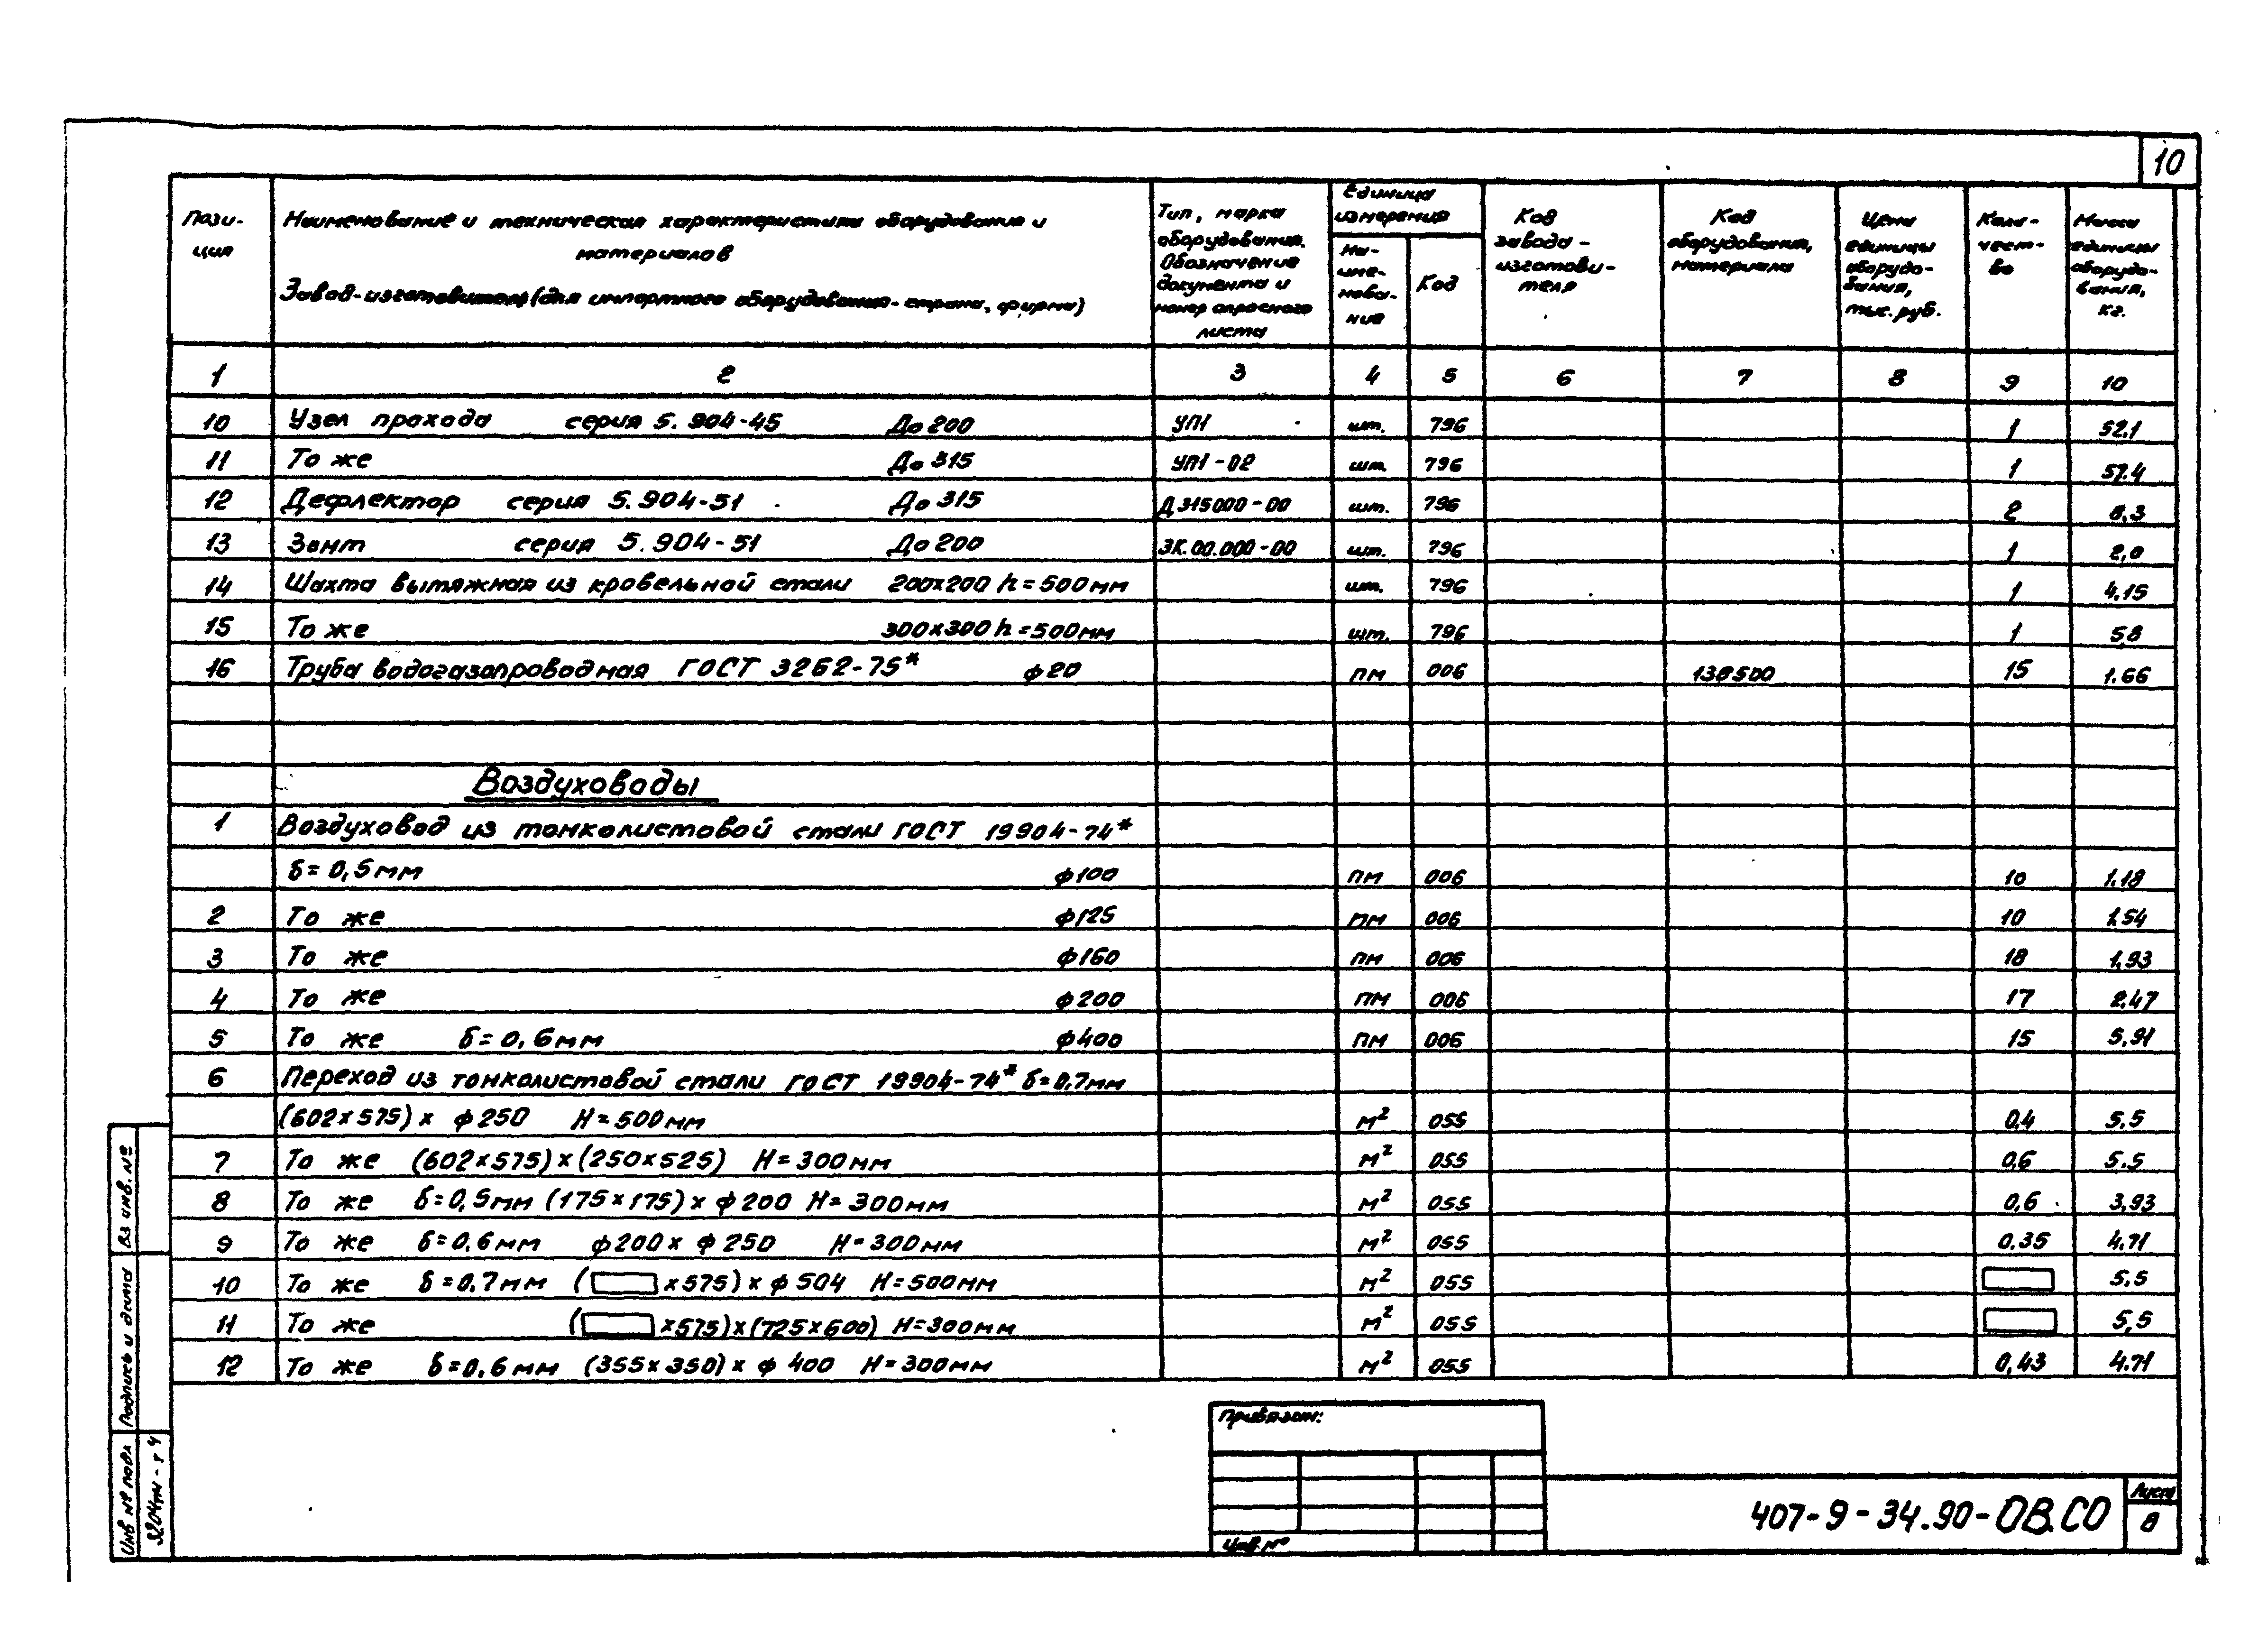 10
Пози-
ция
Наименование и техническая характеристика оборудования и
материалов
Завод-изготовитель (для импортного оборудования - страна, фирма)
Тип, марка
оборудования.
Обозначение
документа и
номер опросного
листа
Единица
измерения
На-
име-
нова-
ние
Код
Код
завода-
изготови-
теля
Код
оборудования,
материала
Цена
единицы
оборудо-
вания,
тыс. руб.
Коли-
чест-
во
Масса
единицы
оборудо-
вания,
кг.
1 2 3 4 5 6 7 8 9 10
10 Узел прохода серия 5.904-45 До 200 УП1 шт. 796 1 52.1
11 То же До 315 УП1-02 шт. 796 1 57.4
12 Дефлектор серия 5.904-51 До 315 Д315000-00 шт. 796 2 8.3
13 Зонт серия 5.904-51 До 200 ЗК.00.000-00 шт. 796 1 2,0
14 Шахта вытяжная из кровельной стали 200х200 h=500мм шт. 796 1 4.15
15 То же 300х300 h=500мм шт. 796 1 5.8
16 Труба водогазопроводная ГОСТ 3262-75* ф20 пм 006 138500 15 1.66
Воздуховоды
1 Воздуховод из тонколистовой стали ГОСТ 19904-74*
δ=0,5мм ф100 пм 006 10 1.18
2 То же ф125 пм 006 10 1.54
3 То же ф160 пм 006 18 1,93
4 То же ф200 пм 006 17 2.47
5 То же δ=0,6мм ф400 пм 006 15 5,91
6 Переход из тонколистовой стали ГОСТ 19904-74* δ=0.7мм
(602х575)х ф250 Н=500мм м² 055 0.4 5.5
7 То же (602х575)х(250х525) Н=300мм м² 055 0,6 5.5
8 То же δ=0,5мм (175х175)х ф200 Н=300мм м² 055 0,6 3,93
9 То же δ=0.6мм ф200х ф250 Н=300мм м² 055 0.35 4.71
10 То же δ=0.7мм ( х575)х ф504 Н=500мм м² 055 5.5
11 То же ( х575)х(725х600) Н=300мм м² 055 5,5
12 То же δ=0,6мм (355х350)х ф 400 Н=300мм м² 055 0,43 4.71
Вз инв. №
Подпись и дата
Инв № подл
3204тм-т4
Привязан:
Инв. №
407-9-34.90-ОВ.СО
Лист
8